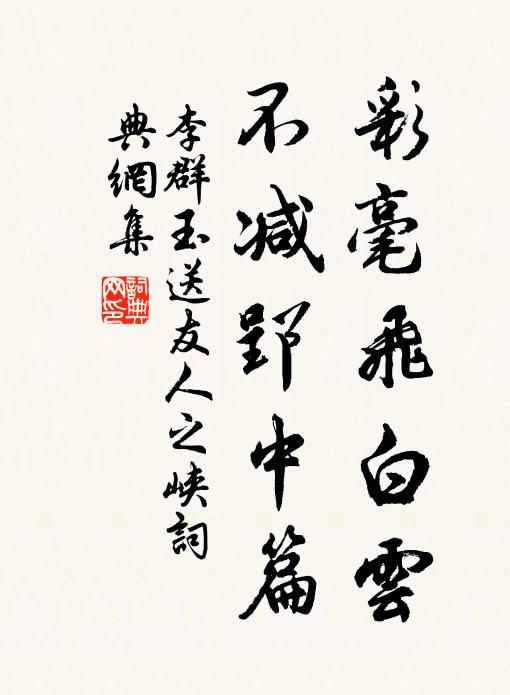 彩毫飛白雲
不減郢中篇
李群玉送友人之峽詞
典網集
詞典网印